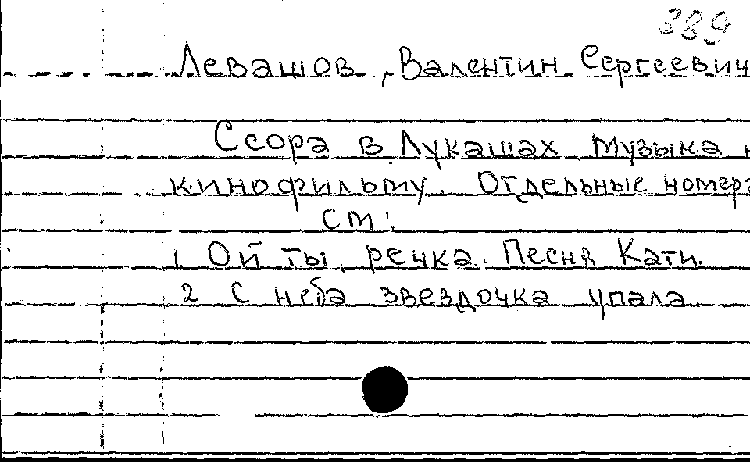 389
Левашов, Валентин Сергеевич
Ссора в Лукашах Музыка к
кинофильму. Отдельные номера
см:
1 Ой ты, речка. Песня Кати.
2 С неба звездочка упала.